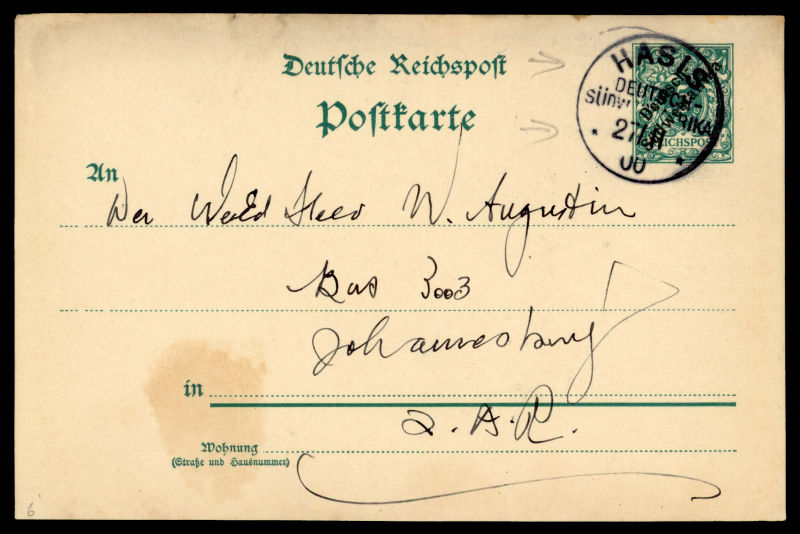 Deutsche Reichspost
Postkarte
HASIS
DEUTSCH-
REICHSPOST
00
An
Der Weled Heer W. Augustin
Bus 3003
Johannesburg
in
Z. A. R.
Wohnung
(Straße und Hausnummer)
6